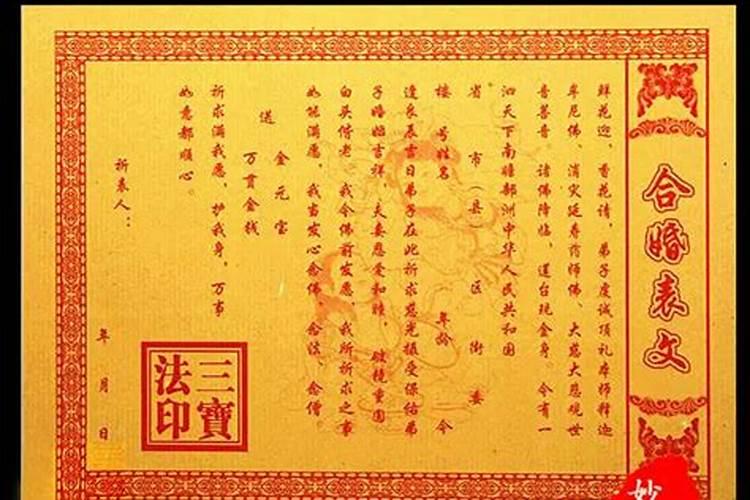 合婚表文
鲜花迎，香花请，弟子虔诚顶礼本师释迦
牟尼佛、消灾延寿药师佛、大慈大悲观世
音菩音。诸佛降临，道台现金身。今有一
泗天下南瞻部洲中华人民共和国
省 市(县) 区 街 委
楼 号姓名 年龄 今
逢良辰吉日弟子在此祈求慈光摄受保佑弟
子婚姻吉祥，夫妻恩爱和睦，破镜重圆
白头偕老。我今佛前发愿，我所祈求之事
如能满愿，我当发心念佛、念法、念僧。
送 金元宝
万贯金钱
祈求满我愿，护我身，万事
如意都顺心。
祈表人：
年 月 日
三寶
法印
妙